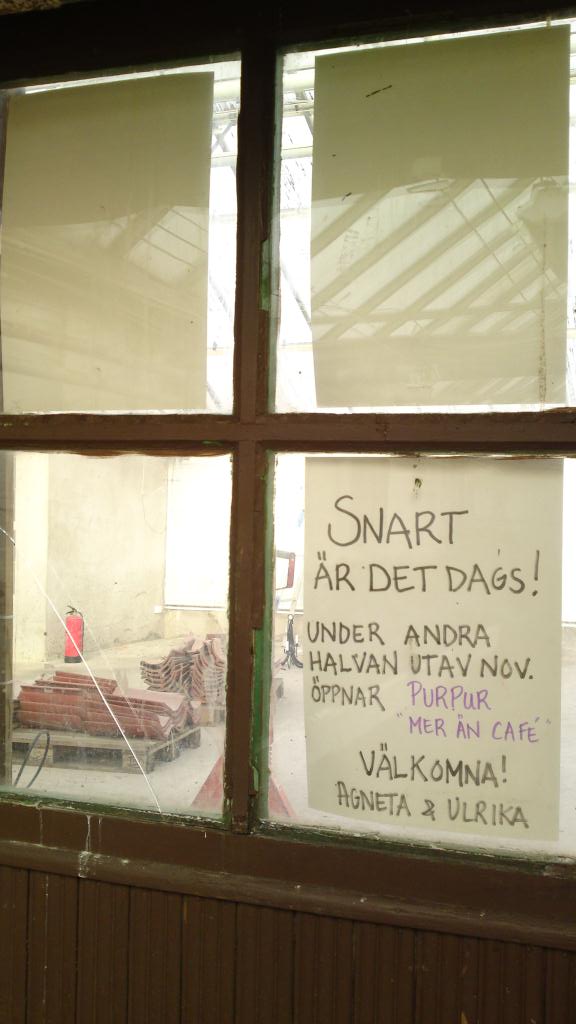 SNART
ÄR DET DAGS!
UNDER ANDRA
HALVAN UTAV NOV.
ÖPPNAR PURPUR
"MER ÄN CAFÉ"
VÄLKOMNA!
AGNETA & ULRIKA